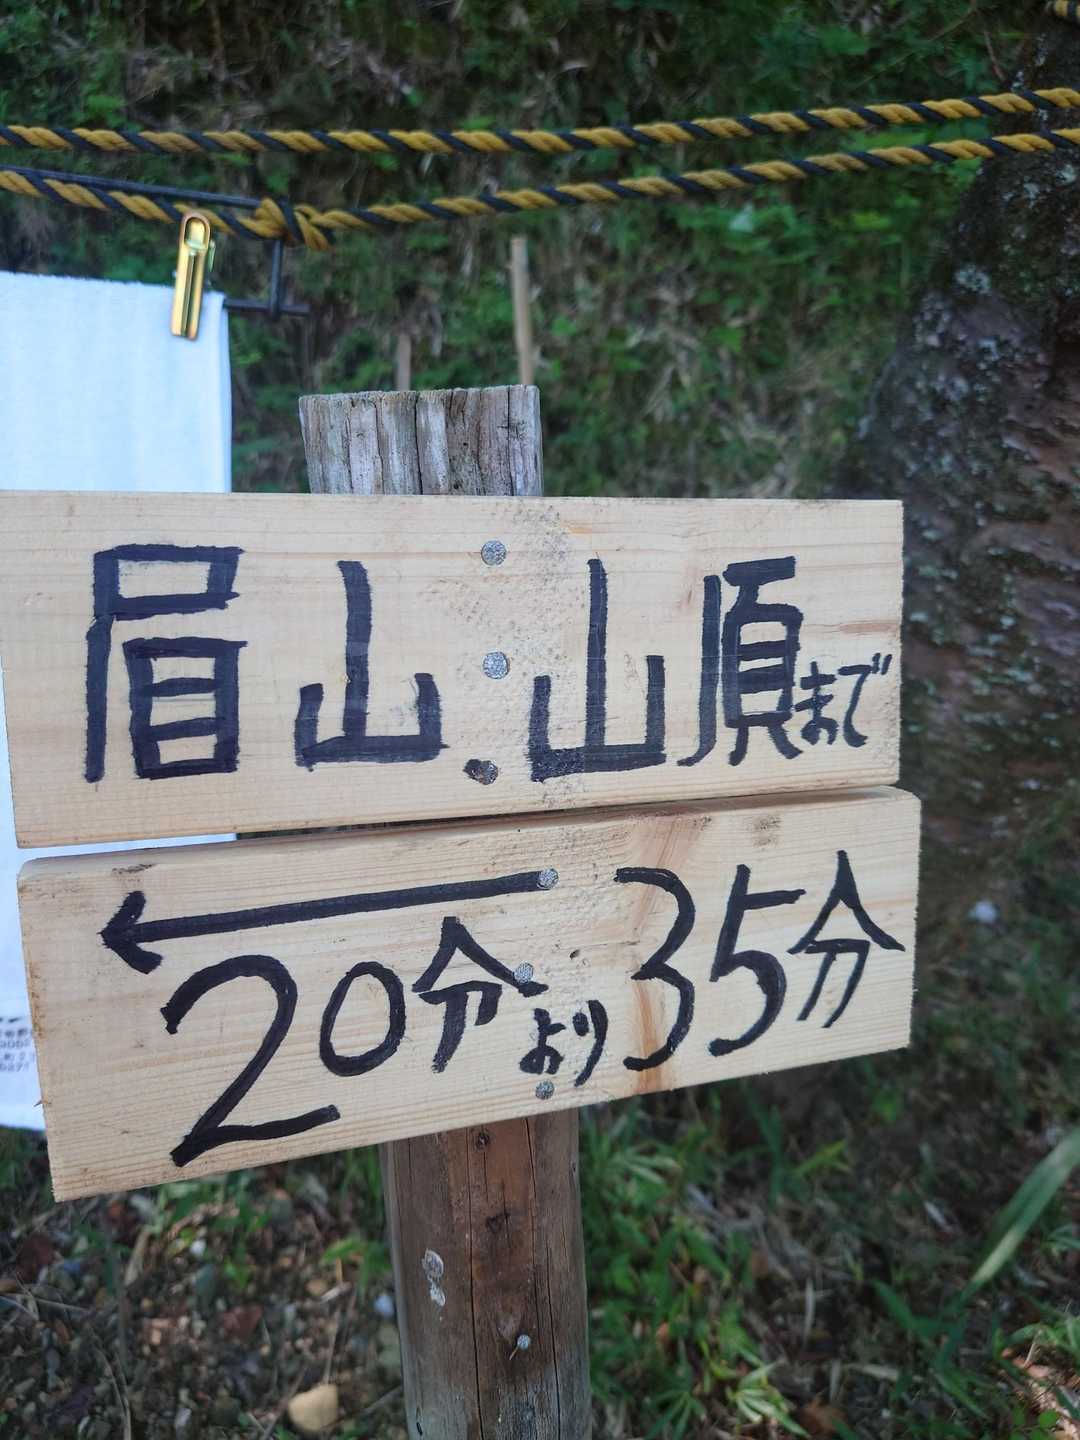 眉山山頂まで
←
20分より35分